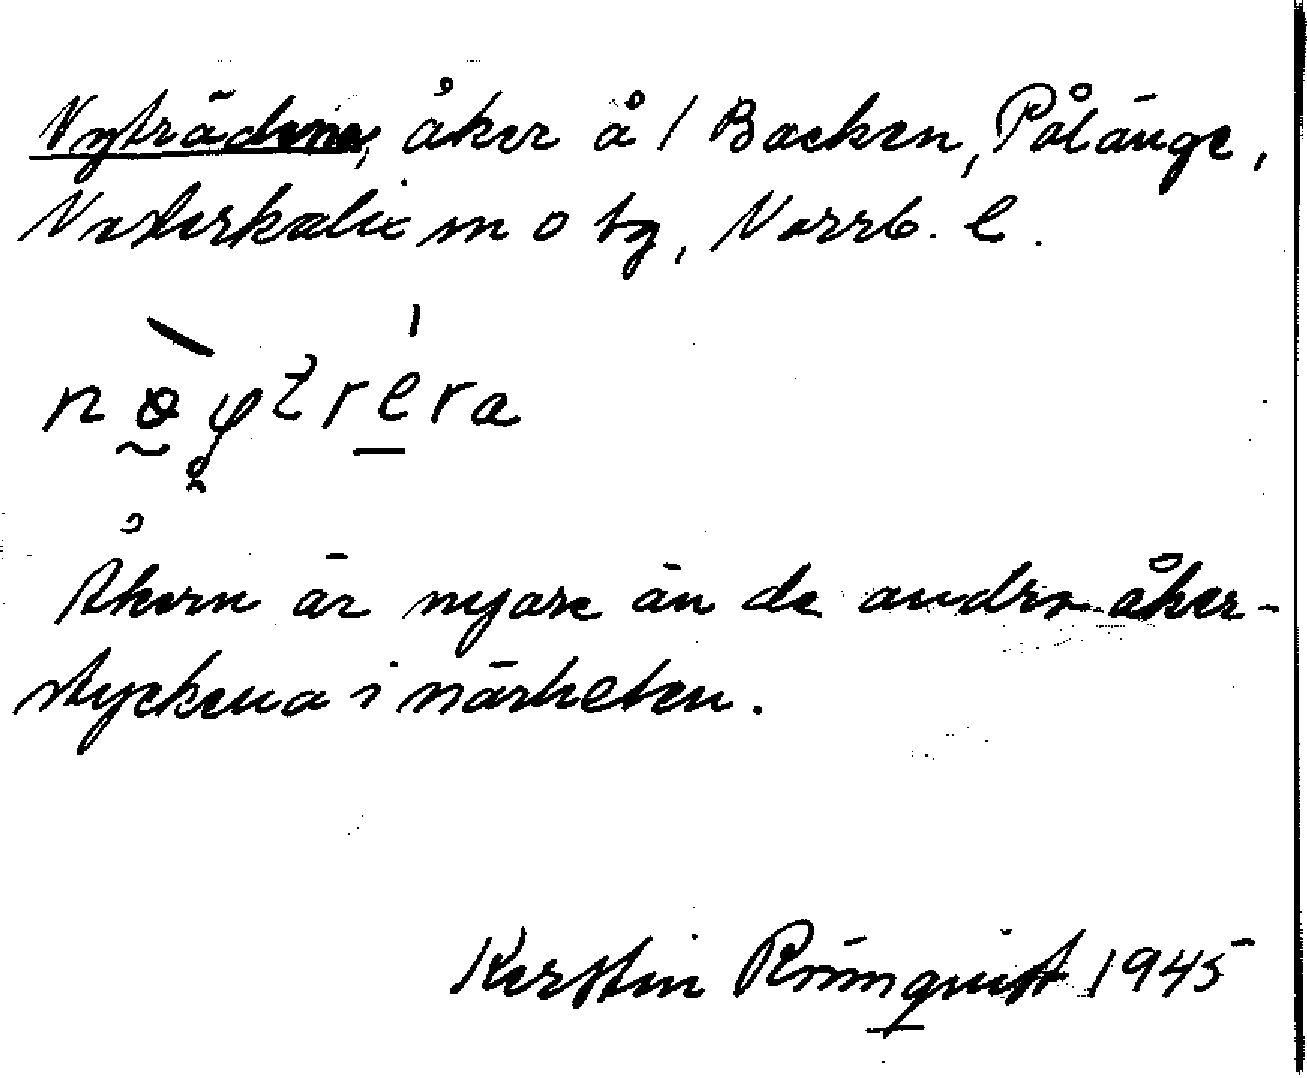 Nyträdena, åker å 1 Backen, Pålänge,
Nederkalix sn o tg, Norrb. l.
Åkern är nyare än de andra åker-
styckena i närheten.
Kerstin Rönnquist 1945